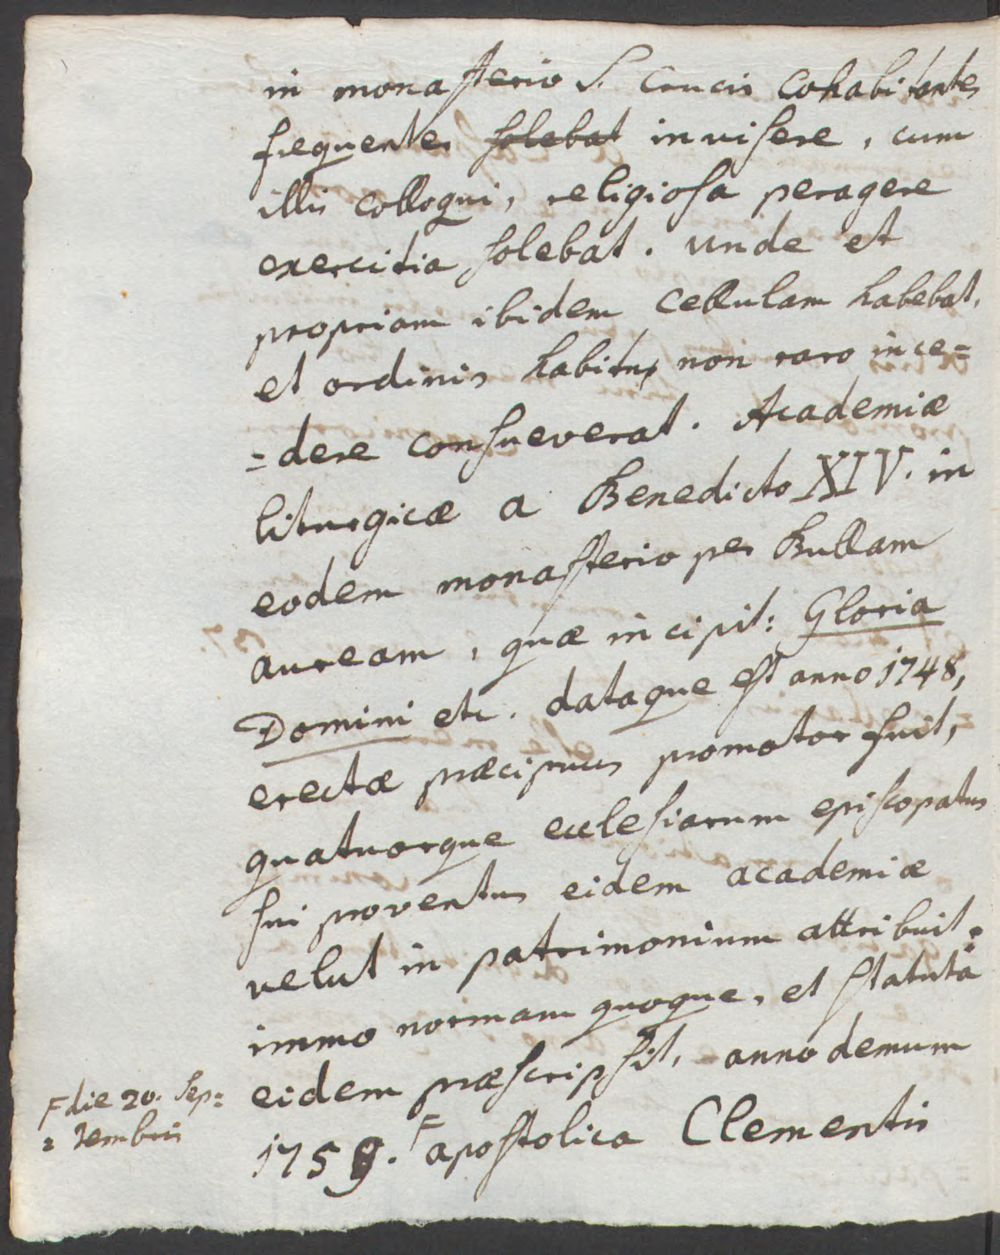 in monasterio S. Crucis Cohabitantes
frequenter solebat invisere, cum
illis colloqui, religiosa peragere
exercitia solebat. Unde et
propriam ibidem Cellulam habebat,
et ordinis habitu non raro ince=
=dere consueverat. Academiæ
liturgicæ a Benedicto XIV. in
eodem monasterio per Bullam
auream, quæ incipit: Gloria
Domini etc. dataque est anno 1748,
erectæ præcipuus promotor fuit,
quatuorque ecclesiarum episcopatus
sui proventus eidem academiæ
velut in patrimonium attribuit.
immo normam quoque, et statuta
eidem præscripsit, anno demum
1759. F apostolica Clementis
F die 20. Sep=
=tembris